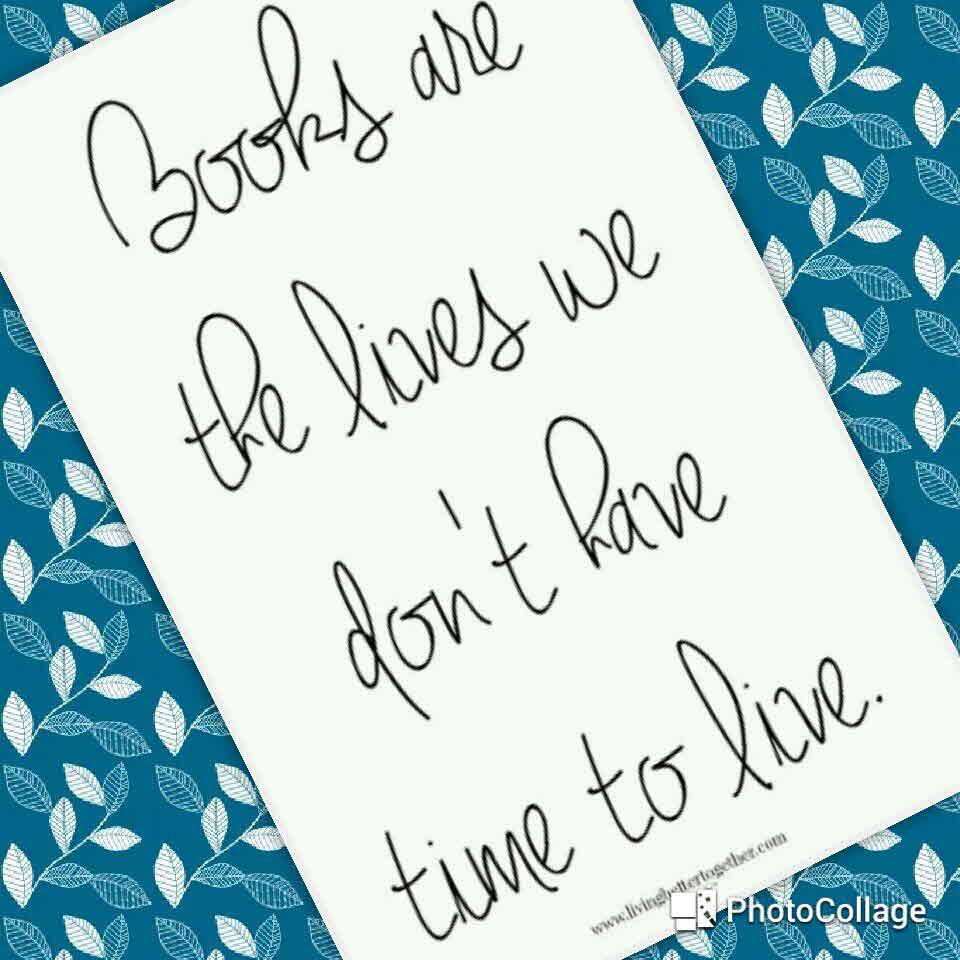 Books are
the lives we
don't have
time to live.
www.livingbettertogether.com
PhotoCollage